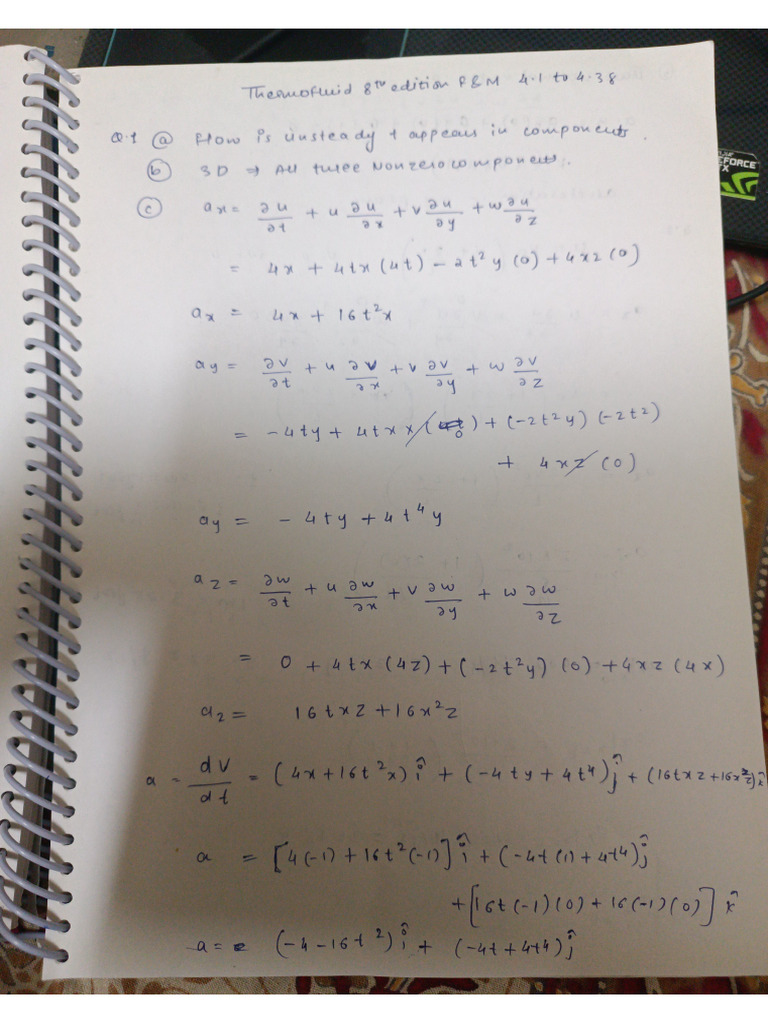 Thermofluid 8TH edition P&M 4.1 to 4.38
Q.1 (a) Flow is unsteady t appears in components.
(b) 3D ⇒ All three Nonzero components.
(c) ax = ∂u/∂t + u ∂u/∂x + v ∂u/∂y + w ∂u/∂z
= 4x + 4tx (4t) - 2t²y (0) + 4xz (0)
ax = 4x + 16t²x
ay = ∂v/∂t + u ∂v/∂x + v ∂v/∂y + w ∂v/∂z
= -4ty + 4tx x (0) + (-2t²y) (-2t²)
+ 4xz (0)
ay = - 4ty + 4t⁴y
az = ∂w/∂t + u ∂w/∂x + v ∂w/∂y + w ∂w/∂z
= 0 + 4tx (4z) + (-2t²y) (0) + 4xz (4x)
az = 16txz + 16x²z
a = dV/dt = (4x+16t²x) î + (-4ty + 4t⁴) ĵ + (16txz + 16x²z) k̂
a = [4(-1) + 16t²(-1)] î + (-4t(1) + 4t4) ĵ
+ [16t(-1)(0) + 16(-1)(0)] k̂
a = (-4 - 16t²) î + (-4t + 4t4) ĵ